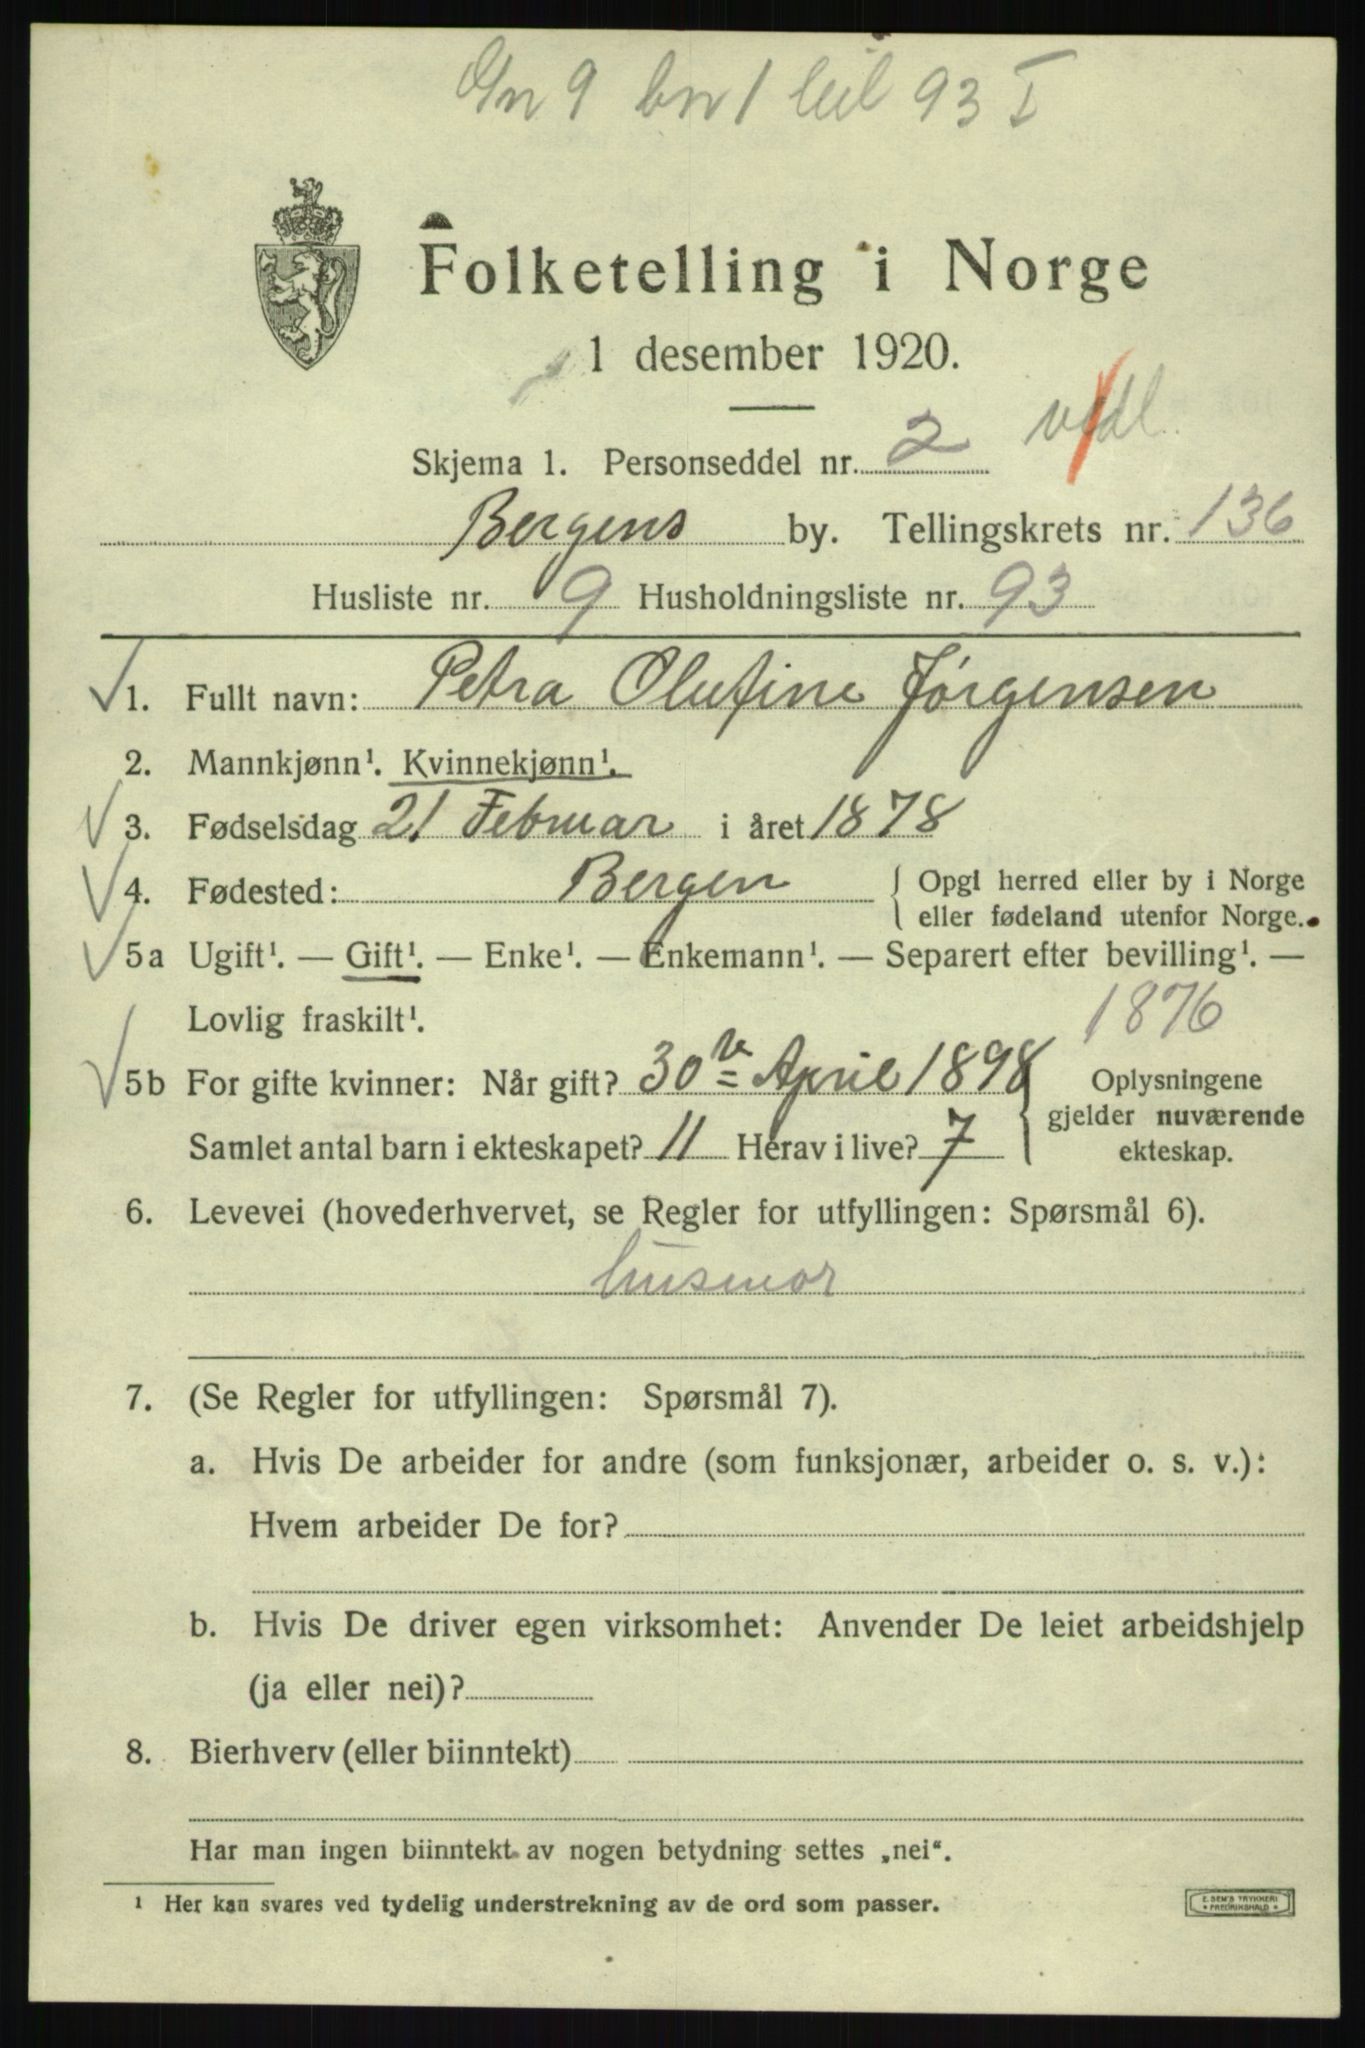 Gn 9 bn 1 leil 93 I
Folketelling i Norge
1 desember 1920.
Skjema 1. Personseddel nr. 2 vedl.
Bergens by. Tellingskrets nr. 136
Husliste nr. 9 Husholdningsliste nr. 93
1. Fullt navn: Petra Olufine Jørgensen
2. Mannkjønn¹. Kvinnekjønn¹.
3. Fødselsdag 21 Februar i året 1878
4. Fødested: Bergen { Opgi herred eller by i Norge
eller fødeland utenfor Norge.
5a Ugift¹. — Gift¹. — Enke¹. — Enkemann¹. — Separert efter bevilling¹. —
Lovlig fraskilt¹. 1876
5b For gifte kvinner: Når gift? 30te April 1898 { Oplysningene
gjelder nuværende
Samlet antal barn i ekteskapet? 11 Herav i live? 7 ekteskap.
6. Levevei (hovederhvervet, se Regler for utfyllingen: Spørsmål 6).
husmor
7. (Se Regler for utfyllingen: Spørsmål 7).
a. Hvis De arbeider for andre (som funksjonær, arbeider o. s. v.):
Hvem arbeider De for?
b. Hvis De driver egen virksomhet: Anvender De leiet arbeidshjelp
(ja eller nei)?
8. Bierhverv (eller biinntekt)
Har man ingen biinntekt av nogen betydning settes „nei“.
¹ Her kan svares ved tydelig understrekning av de ord som passer.
E. SEM'S TRYKKERI
FREDRIKSHALD